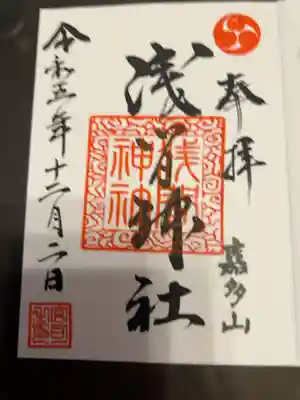 奉拝
喜多山
浅間神社
浅間神社
令和五年十二月二日